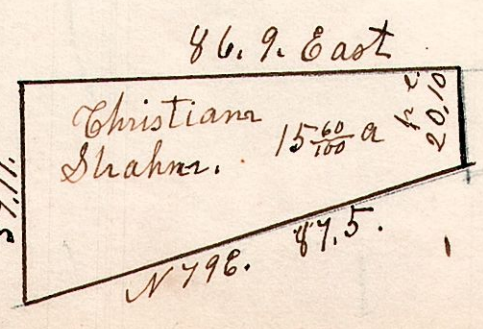 86.9. East
Christian
Strahm. 15 60/100 a
20.10
N 79 E. 87.5.